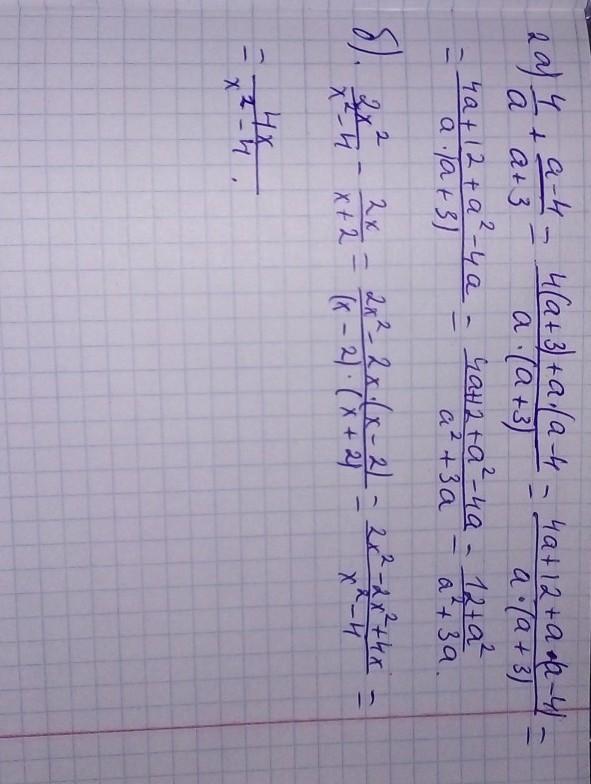 2 а) 4/a + a-4/a+3 = 4(a+3)+a·(a-4/a·(a+3) = 4a+12+a·(a-4)/a·(a+3) =
= 4a+12+a²-4a/a·(a+3) = 4a+12+a²-4a/a²+3a = 12+a²/a²+3a.
б). 2x²/x²-4 - 2x/x+2 = 2x²-2x·(x-2)/(x-2)·(x+2) = 2x²-2x²+4x/x²-4 =
= 4x/x²-4.